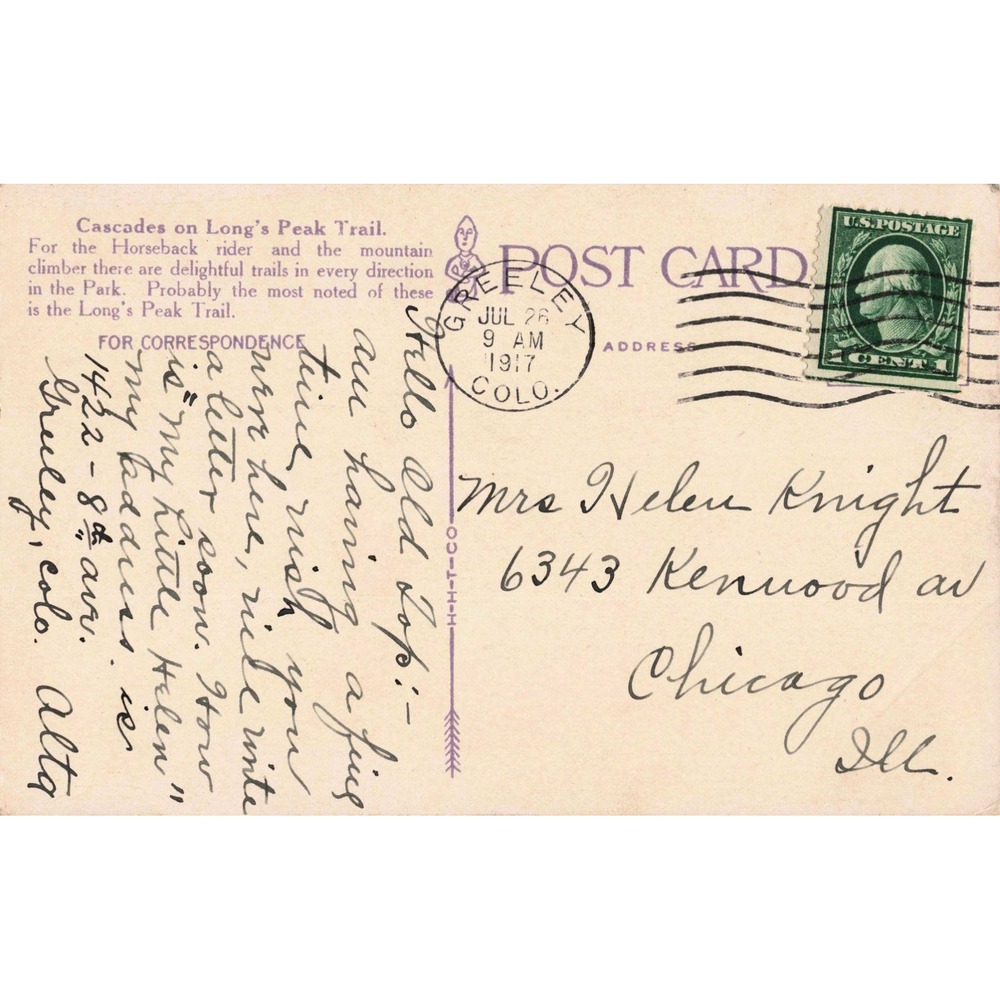 Cascades on Long's Peak Trail.
For the Horseback rider and the mountain
climber there are delightful trails in every direction
in the Park. Probably the most noted of these
is the Long's Peak Trail.
FOR CORRESPONDENCE
POST CARD
ADDRESS
GREELEY
JUL 26
9 AM
1917
COLO.
U.S. POSTAGE
1 CENT 1
H-H-T-CO
Hello Old Top:-
am having a fine
time, wish you
were here, will write
a letter soon. How
is "My Little Helen"
my address. is
1422 - 8th av.
Greeley, Colo. Alta
Mrs Helen Knight
6343 Kenwood av
Chicago
Ill.